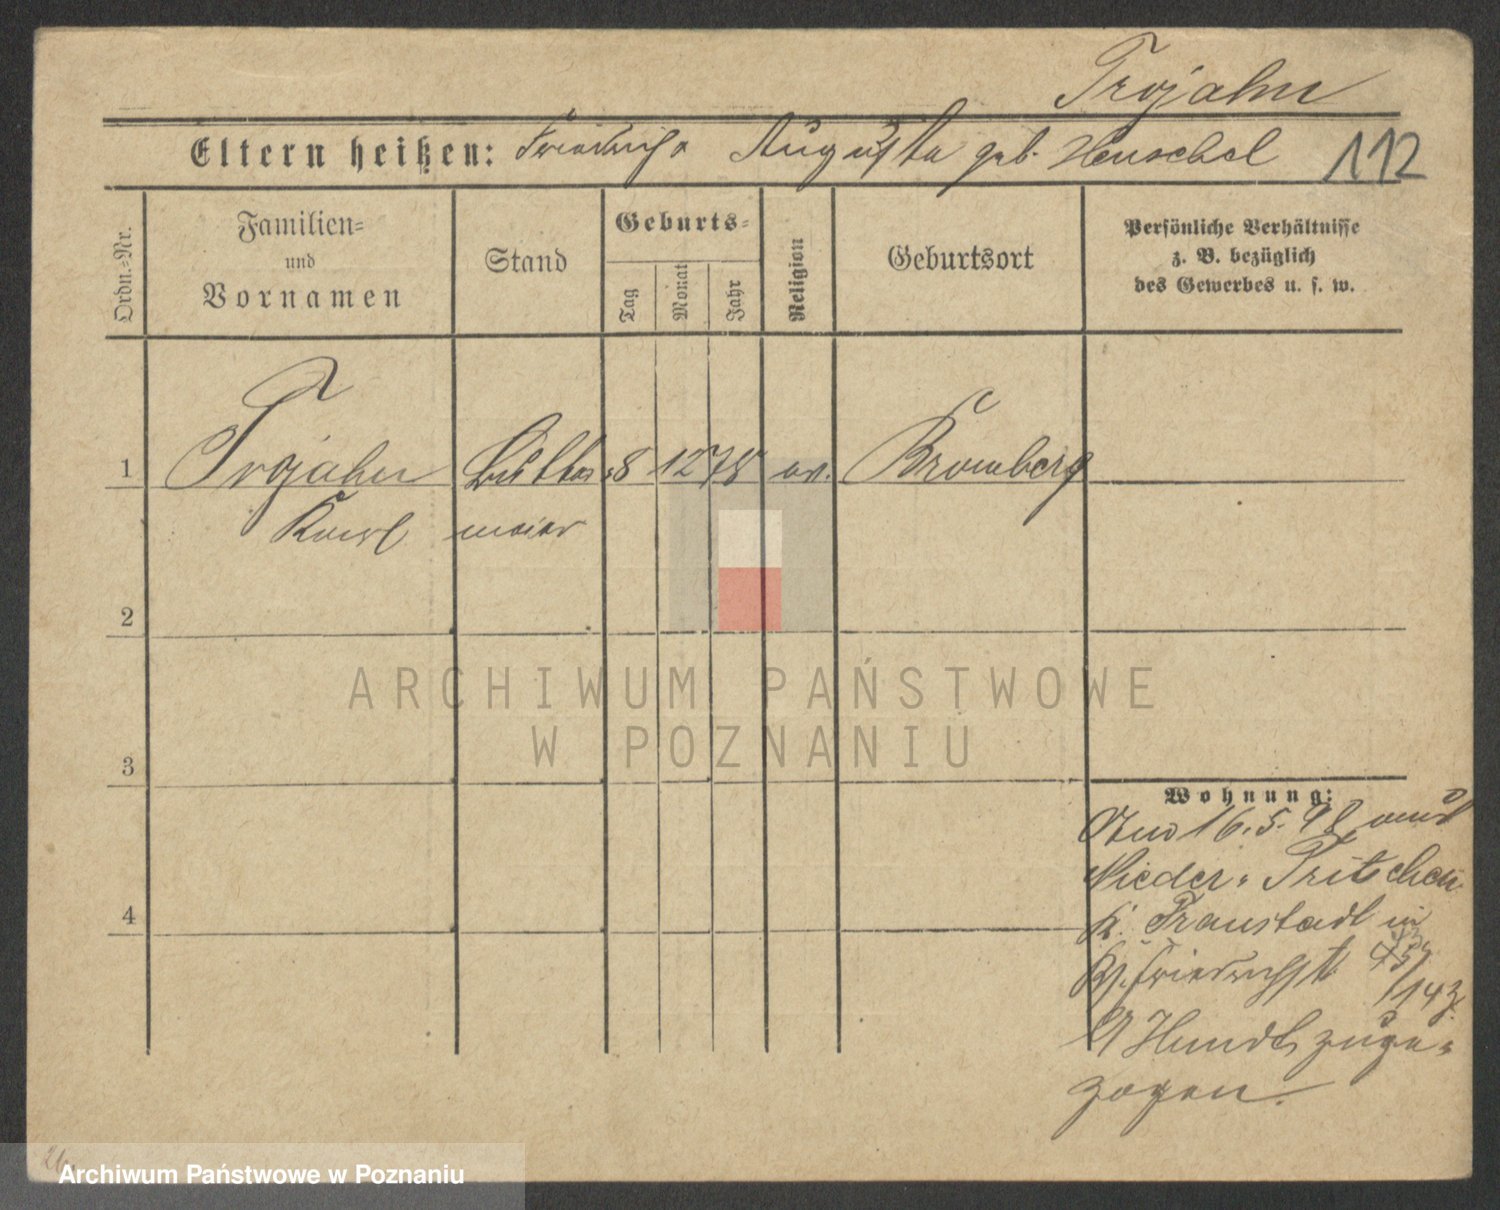 Trojahn
Eltern heißen: Friedrich Augusta geb. Henschel 112
Ordn.-Nr.
Familien-
und
Vornamen
Stand
Geburts-
Tag
Monat
Jahr
Religion
Geburtsort
Persönliche Verhältnisse
z. B. bezüglich
des Gewerbes u. s. w.
1 Trojahn 8 12 78 ev. Bromberg
Karl
2
3
4
Wohnung:
16.5.98
Nieder-Pritschen
Kr. Fraustadt in
Friedrichst.
zuge-
zogen.
ARCHIWUM PAŃSTWOWE
W POZNANIU
Archiwum Państwowe w Poznaniu